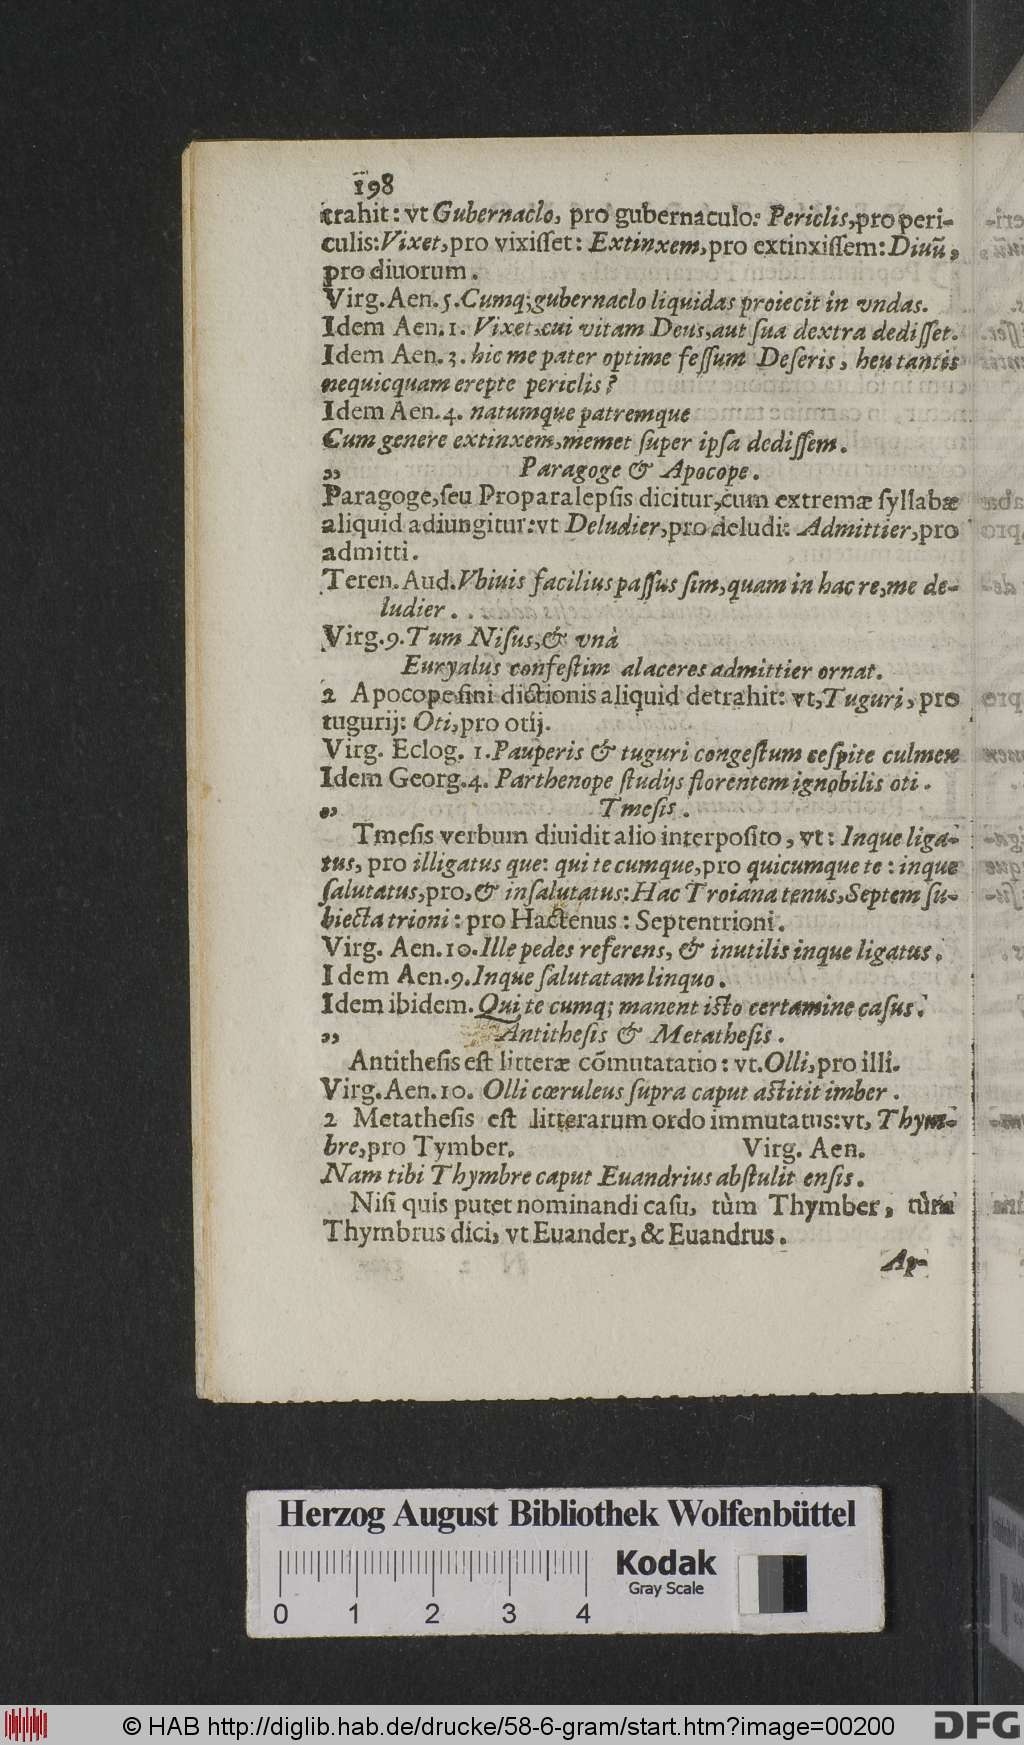 198
trahit: vt Gubernaclo, pro gubernaculo: Periclis, pro peri-
culis: Vixet, pro vixiſſet: Extinxem, pro extinxiſſem: Diuũ,
pro diuorum.
Virg. Aen. 5. Cumq; gubernaclo liquidas proiecit in vndas.
Idem Aen. 1. Vixet, cui vitam Deus, aut ſua dextra dediſſet.
Idem Aen. 3. hic me pater optime feſſum Deſeris, heu tantis
nequicquam erepte periclis?
Idem Aen. 4. natumque patremque
Cum genere extinxem, memet ſuper ipſa dediſſem.
„ Paragoge & Apocope.
Paragoge, ſeu Proparalepſis dicitur, cum extremæ ſyllabæ
aliquid adiungitur: vt Deludier, pro deludi: Admittier, pro
admitti.
Teren. Aud. Vbiuis facilius paſſus ſim, quam in hac re, me de-
ludier.
Virg. 9. Tum Niſus, & vnà
Euryalus confeſtim alaceres admittier ornat.
2 Apocope fini dictionis aliquid detrahit: vt, Tuguri, pro
tugurij: Oti, pro otij.
Virg. Eclog. 1. Pauperis & tuguri congeſtum ceſpite culmen
Idem Georg. 4. Parthenope ſtudijs florentem ignobilis oti.
„ Tmeſis.
Tmeſis verbum diuidit alio interpoſito, vt: Inque liga-
tus, pro illigatus que: qui te cumque, pro quicumque te: inque
ſalutatus, pro, & inſalutatus: Hac Troiana tenus, Septem ſu-
biecta trioni: pro Hactenus: Septentrioni.
Virg. Aen. 10. Ille pedes referens, & inutilis inque ligatus.
Idem Aen. 9. Inque ſalutatam linquo.
Idem ibidem. Qui te cumq; manent iſto certamine caſus.
„ Antitheſis & Metatheſis.
Antitheſis eſt litteræ cõmutatatio: vt. Olli, pro illi.
Virg. Aen. 10. Olli cœruleus ſupra caput aſtitit imber.
2 Metatheſis eſt litterarum ordo immutatus: vt, Thym-
bre, pro Tymber. Virg. Aen.
Nam tibi Thymbre caput Euandrius abſtulit enſis.
Niſi quis putet nominandi caſu, tùm Thymber, tùm
Thymbrus dici, vt Euander, & Euandrus.
Ap-
Herzog August Bibliothek Wolfenbüttel
Kodak
Gray Scale
0 1 2 3 4
© HAB http://diglib.hab.de/drucke/58-6-gram/start.htm?image=00200
DFG